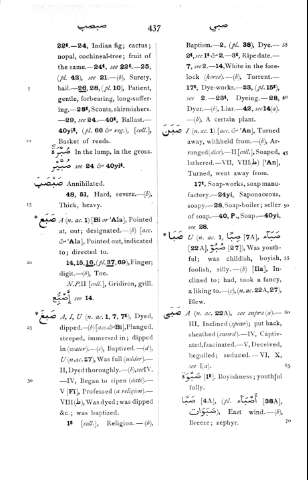 صبصب
437
صبى
22ᵗ.—24, Indian fig; cactus;
nopal, cochineal-tree; fruit of
the same.—24ᵗ, see 22ᵗ.—25,
(pl. 43), see 21.—(b), Surety,
bail.—26, 28, (pl. 10), Patient,
gentle, forbearing, long-suffer-
ing.—28ᵗ, Scouts, skirmishers.
—29, see 24.—40ᵗ, Ballast.—
Basket of reeds.
صُبْرَة In the lump, in the gross.
see 24 & 40yiᵗ
صَبْصَبَ Annihilated.
48, 51, Hard, severe.—(b),
Thick, heavy.
صَبَعَ A (n. ac. 1) [Bi or 'Ala], Pointed
at, out; designated.—(b) [acc.
& 'Ala], Pointed out, indicated
to; directed to.
14, 15, 16, (pl. 37, 69), Finger;
digit.—(b), Toe.
N.P. II [coll.], Gridiron, grill.
أُصْبُع see 14.
صَبَغَ A, I, U (n. ac. 1, 7, 7ᵗ), Dyed,
dipped.—(b) [acc. & Bi], Plunged,
steeped, immersed in; dipped
in (water).—(c), Baptized.—(d),
U (n. ac. 27), Was full (udder).—
II, Dyed thoroughly.—(b), see IV.
—IV, Began to ripen (date).—
V [Fi], Professed (a religion).—
VIII (ط), Was dyed; was dipped
&c.; was baptized.
1ᵗ [coll.], Religion.—(b),
Baptism.—2, (pl. 38), Dye.—
2ᵗ, see 1ᵗ & 2.—3ᵗ, Ripe date.—
7, see 2.—14, White in the fore-
lock (horse).—(b), Torrent.—
17ᵗ, Dye-works.—23, (pl. 15ᵗ),
see 2.—23ᵗ, Dyeing.—28,
Dyer.—(b), Liar.—42, see 14 (a).
—(b), A certain plant.
صَبَنَ I (n. ac. 1) [acc. & 'An], Turned
away, withheld from.—(b), Ar-
ranged (dice).—II [coll.], Soaped,
lathered.—VII, VIII (ط) ['An],
Turned, went away from.
17ᵗ, Soap-works, soap manu-
factory.—24yi, Saponaceous,
soapy.—28, Soap-boiler; seller
of soap.—40, P., Soap—40yi,
see 28.
صَبَا U (n. ac. 1, صَبَاء [7A], صُبُوّ
[22A], صُبُوّ [27]), Was youth-
ful; was childish, boyish,
foolish, silly.—(b) [Ila], In-
clined to; had, took a fancy,
a liking to.—(c), (n. ac. 22A, 27),
Blew.
صَبِيَ A (n. ac. 22A, see supra (a).—
III, Inclined (spear); put back,
sheathed (sword).—IV, Captiv-
ated, fascinated.—V, Deceived,
beguiled; seduced.—VI, X,
see I (a).
صَبْوَة [1ᵗ], Boyishness; youthful
folly.
صَبًا [4A], (pl. أَصْبَاء [38A],
صَبَوَات), East wind.—(b),
Breeze; zephyr.